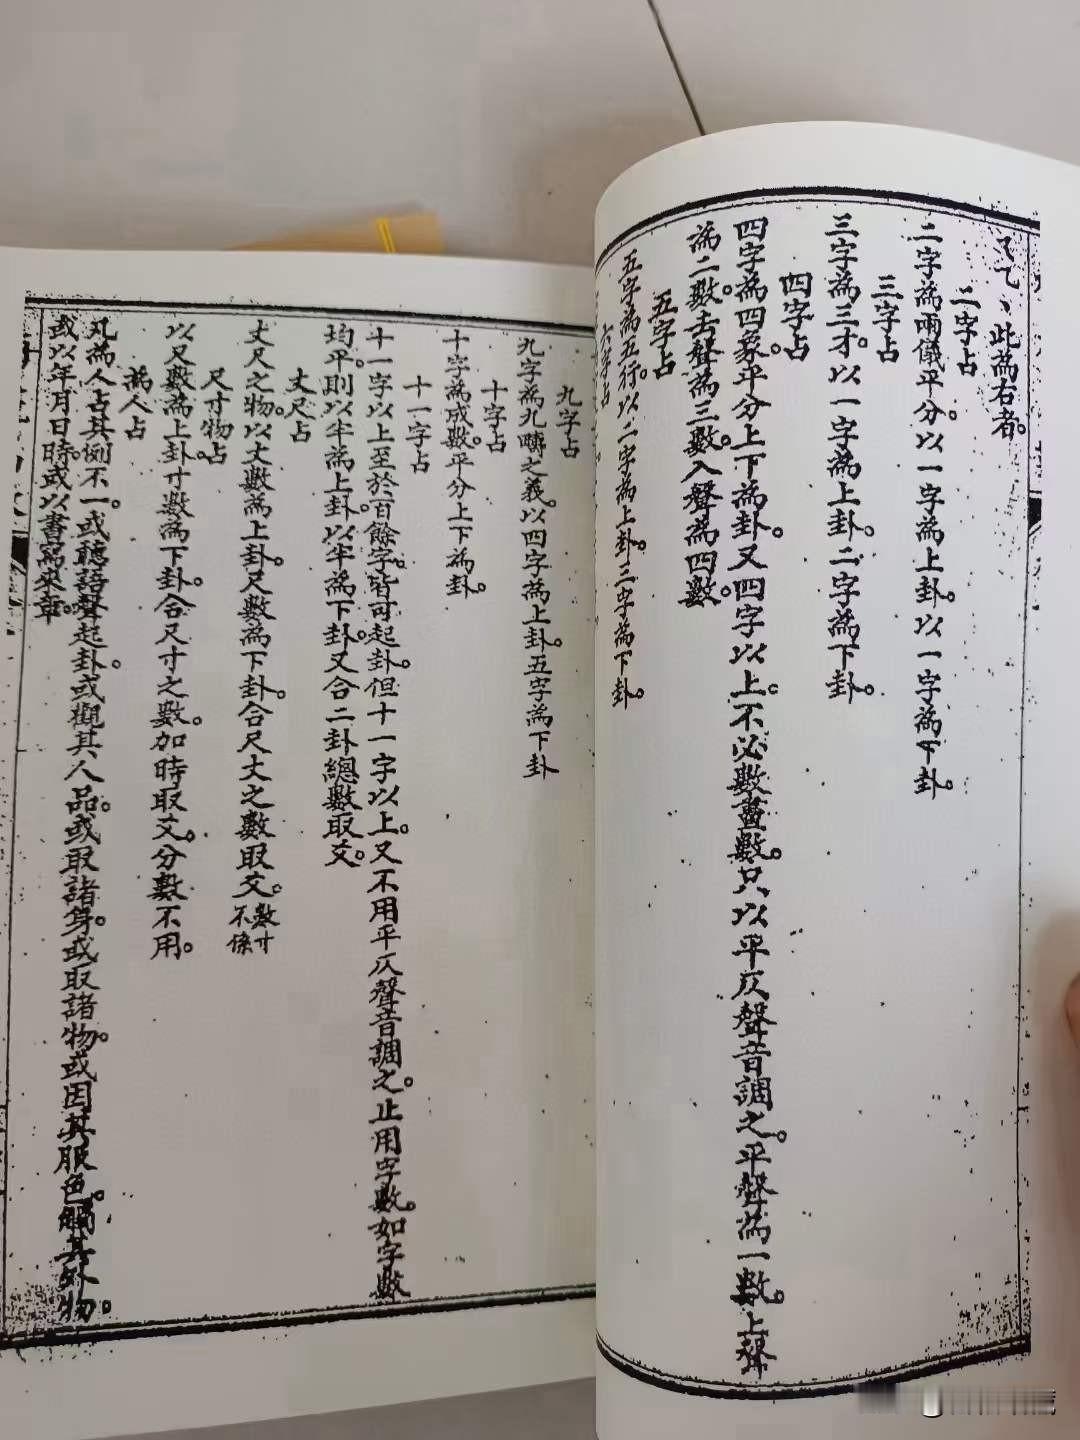 此為右者。
二字占
二字為兩儀平分。以一字為上卦。以一字為下卦。
三字占
三字為三才。以一字為上卦。二字為下卦。
四字占
四字為四象。平分上下為卦。又四字以上。不必數畫數。只以平仄聲音調之。平聲為一數。上聲
為二數。去聲為三數。入聲為四數。
五字占
五字為五行。以二字為上卦。三字為下卦。
六字占
九字占
九字為九疇之義。以四字為上卦。五字為下卦
十字占
十字為成數。平分上下為卦。
十一字占
十一字以上至於百餘字。皆可起卦。但十一字以上。又不用平仄聲音調之。止用字數。如字數
均平。則以半為上卦。以半為下卦。又合二卦總數取爻。
丈尺占
丈尺之物。以丈數為上卦。尺數為下卦。合尺丈之數取爻。數寸不係
尺寸物占
以尺數為上卦。寸數為下卦。合尺寸之數。加時取爻。分數不用。
為人占
凡為人占。其例不一。或聽語聲起卦。或觀其人品。或取諸身。或取諸物。或因其服色。觸其外物。
或以年月日時。或以書寫來章。